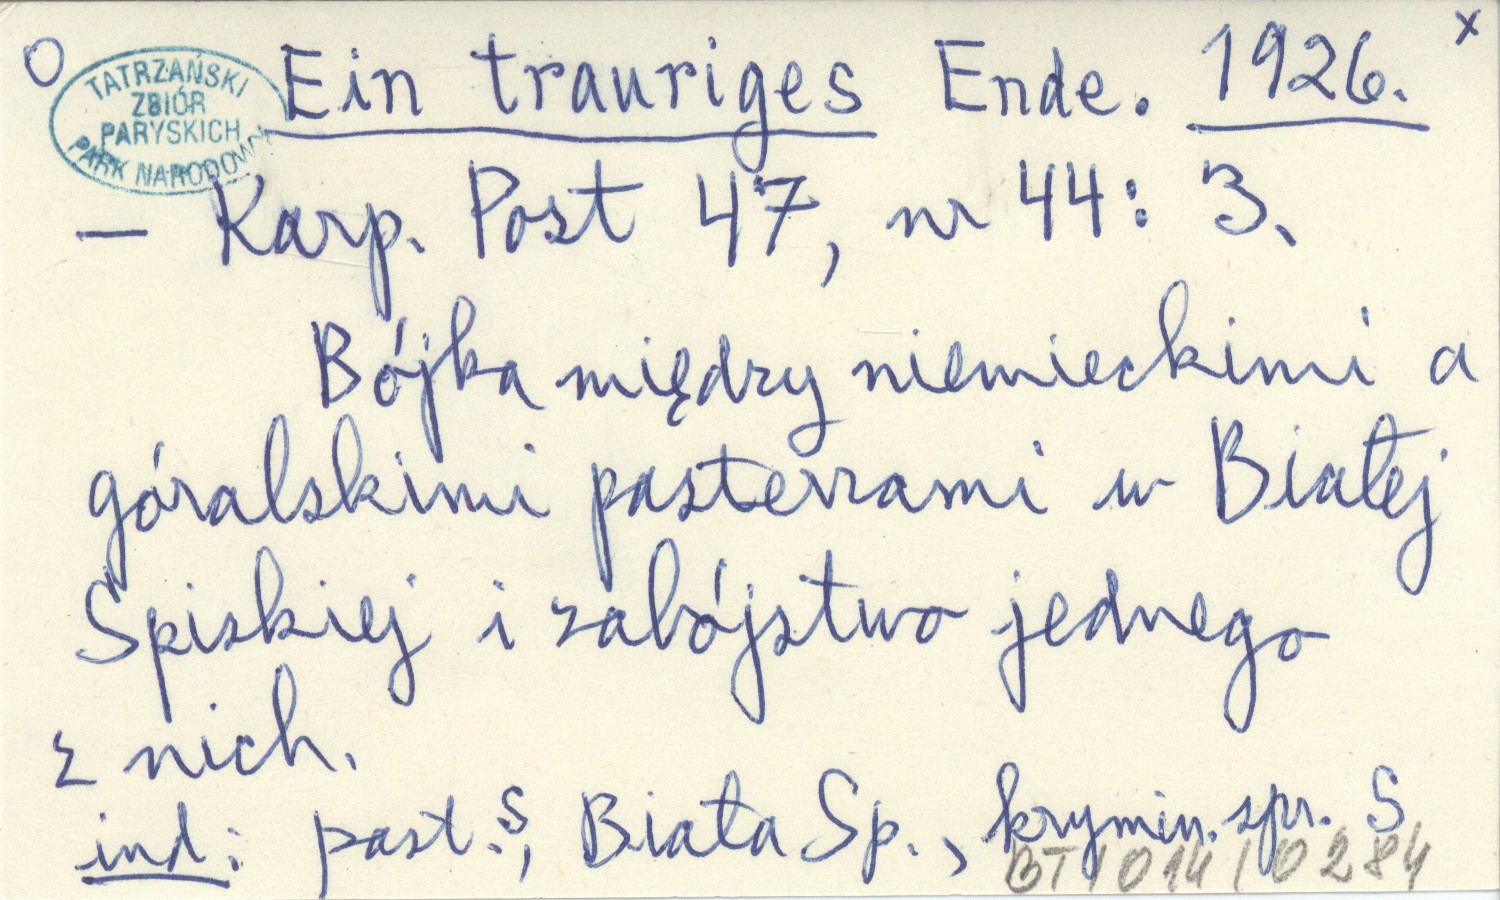 O Ein trauriges Ende. 1926. x
TATRZAŃSKI
ZBIÓR
PARYSKICH
PARK NARODOWY
— Karp. Post 47, nr 44: 3.
Bójka między niemieckimi a
góralskimi pasterzami w Białej
Spiskiej i zabójstwo jednego
z nich.
ind: past. S, Biała Sp., krymin. spr. S
BT 1014 / 0284